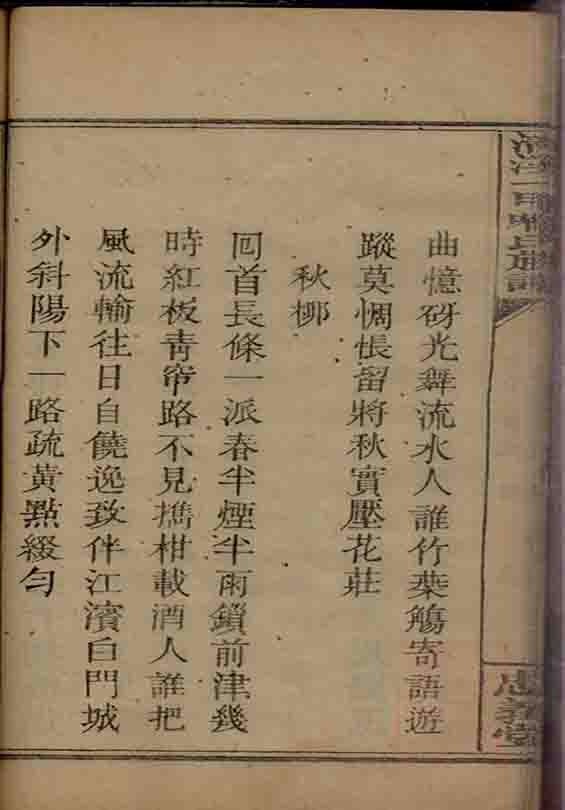 曲憶砑光舞流水人誰竹葉觴寄語遊
蹤莫惆悵留將秋實壓花莊
秋柳
回首長條一派春半煙半雨鎖前津幾
時紅板青帘路不見攜柑載酒人誰把
風流輸往日自饒逸致伴江濱白門城
外斜陽下一路疏黃點綴勻